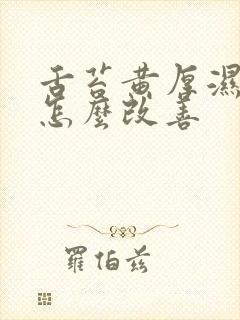 舌苔黄厚濕
怎麼改善
羅伯茲